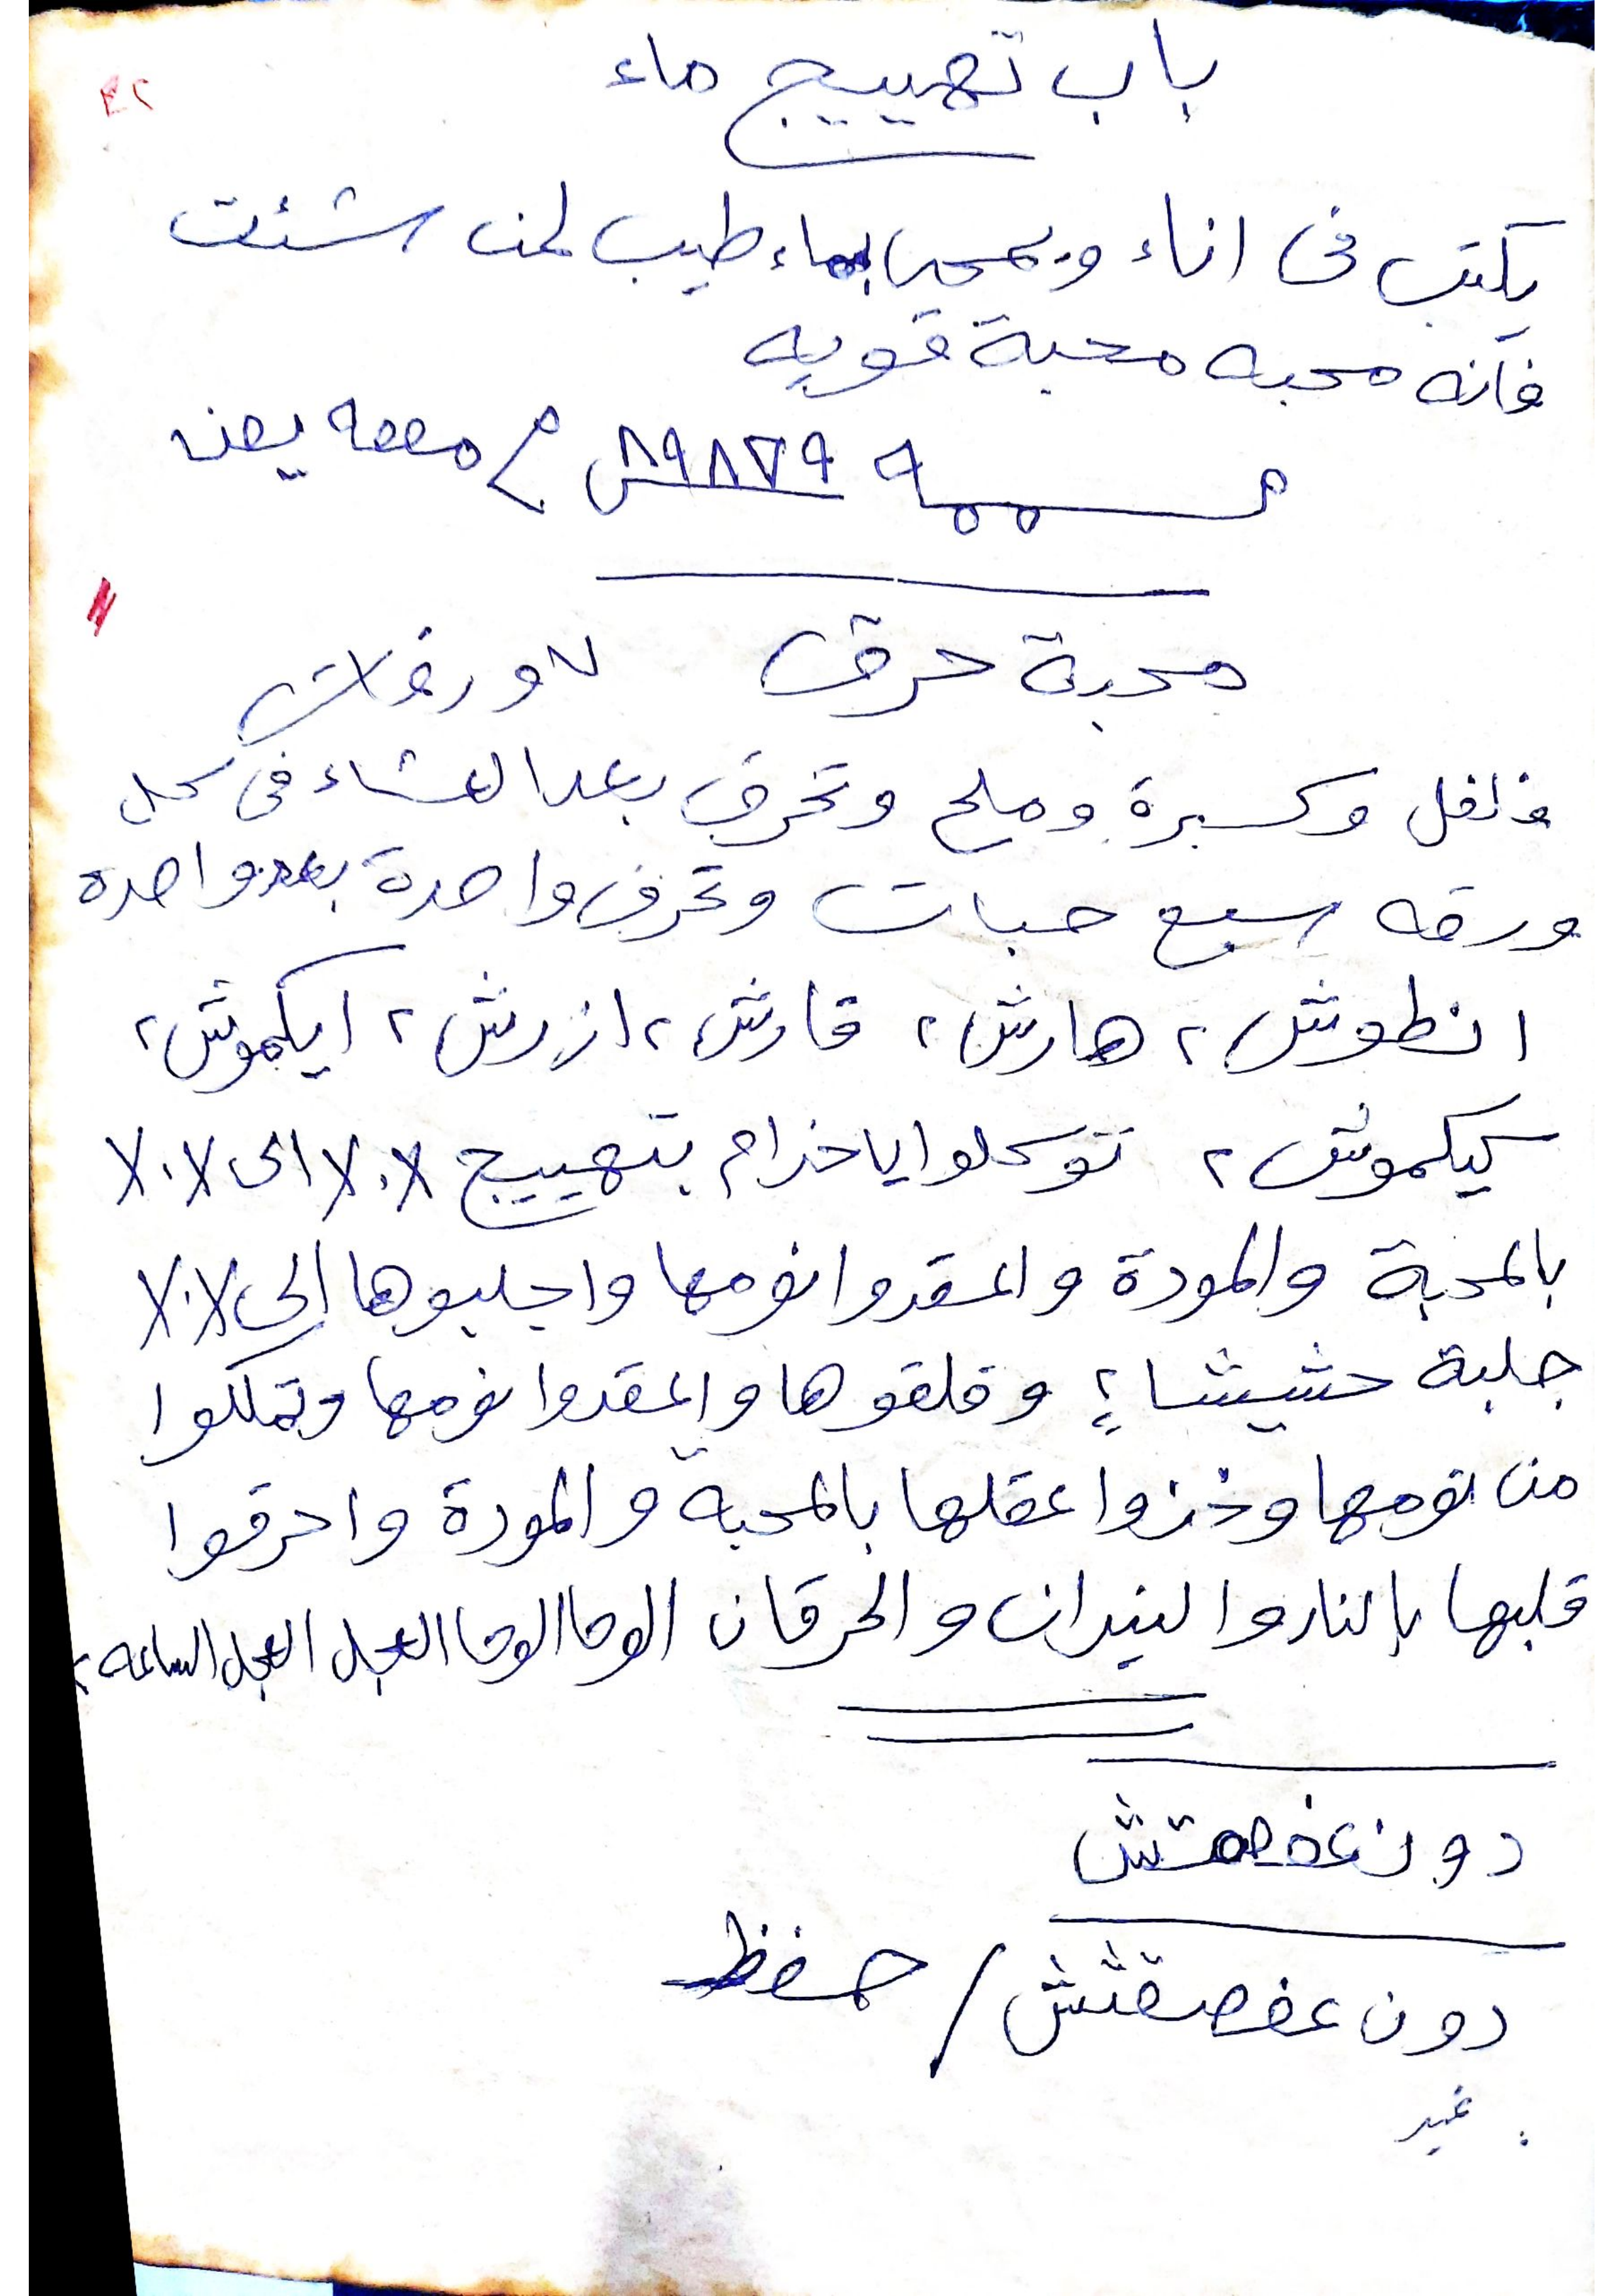 باب تهييج ماء
٤٢
يكتب فى اناء ويمحى بماء طيب لمن شئت
فانه محبه محبة قويه
٨٩٨٧٩
محبة حرق ٧ ورقات
فلفل وكسبرة وملح وتحرق بعد العشاء فى كل
ورقه سبع حبات وتحرق واحدة بعد واحده
انطوش ٢ هارش ٢ قارش ٢ ازرش ٢ ايكموش ٢
كيكموش ٢ توكلوا يا خدام بتهييج الى
بالمحبة والمودة واعقدوا نومها واجلبوها الى
جلبة حشيشا وقلقوها واعقدوا نومها وتملكوا
من نومها وخذوا عقلها بالمحبه والمودة واحرقوا
قلبها بالنار والنيران والحرقان الوحا الوحا العجل العجل الساعه ٢
دون
دون / حفظ
غير